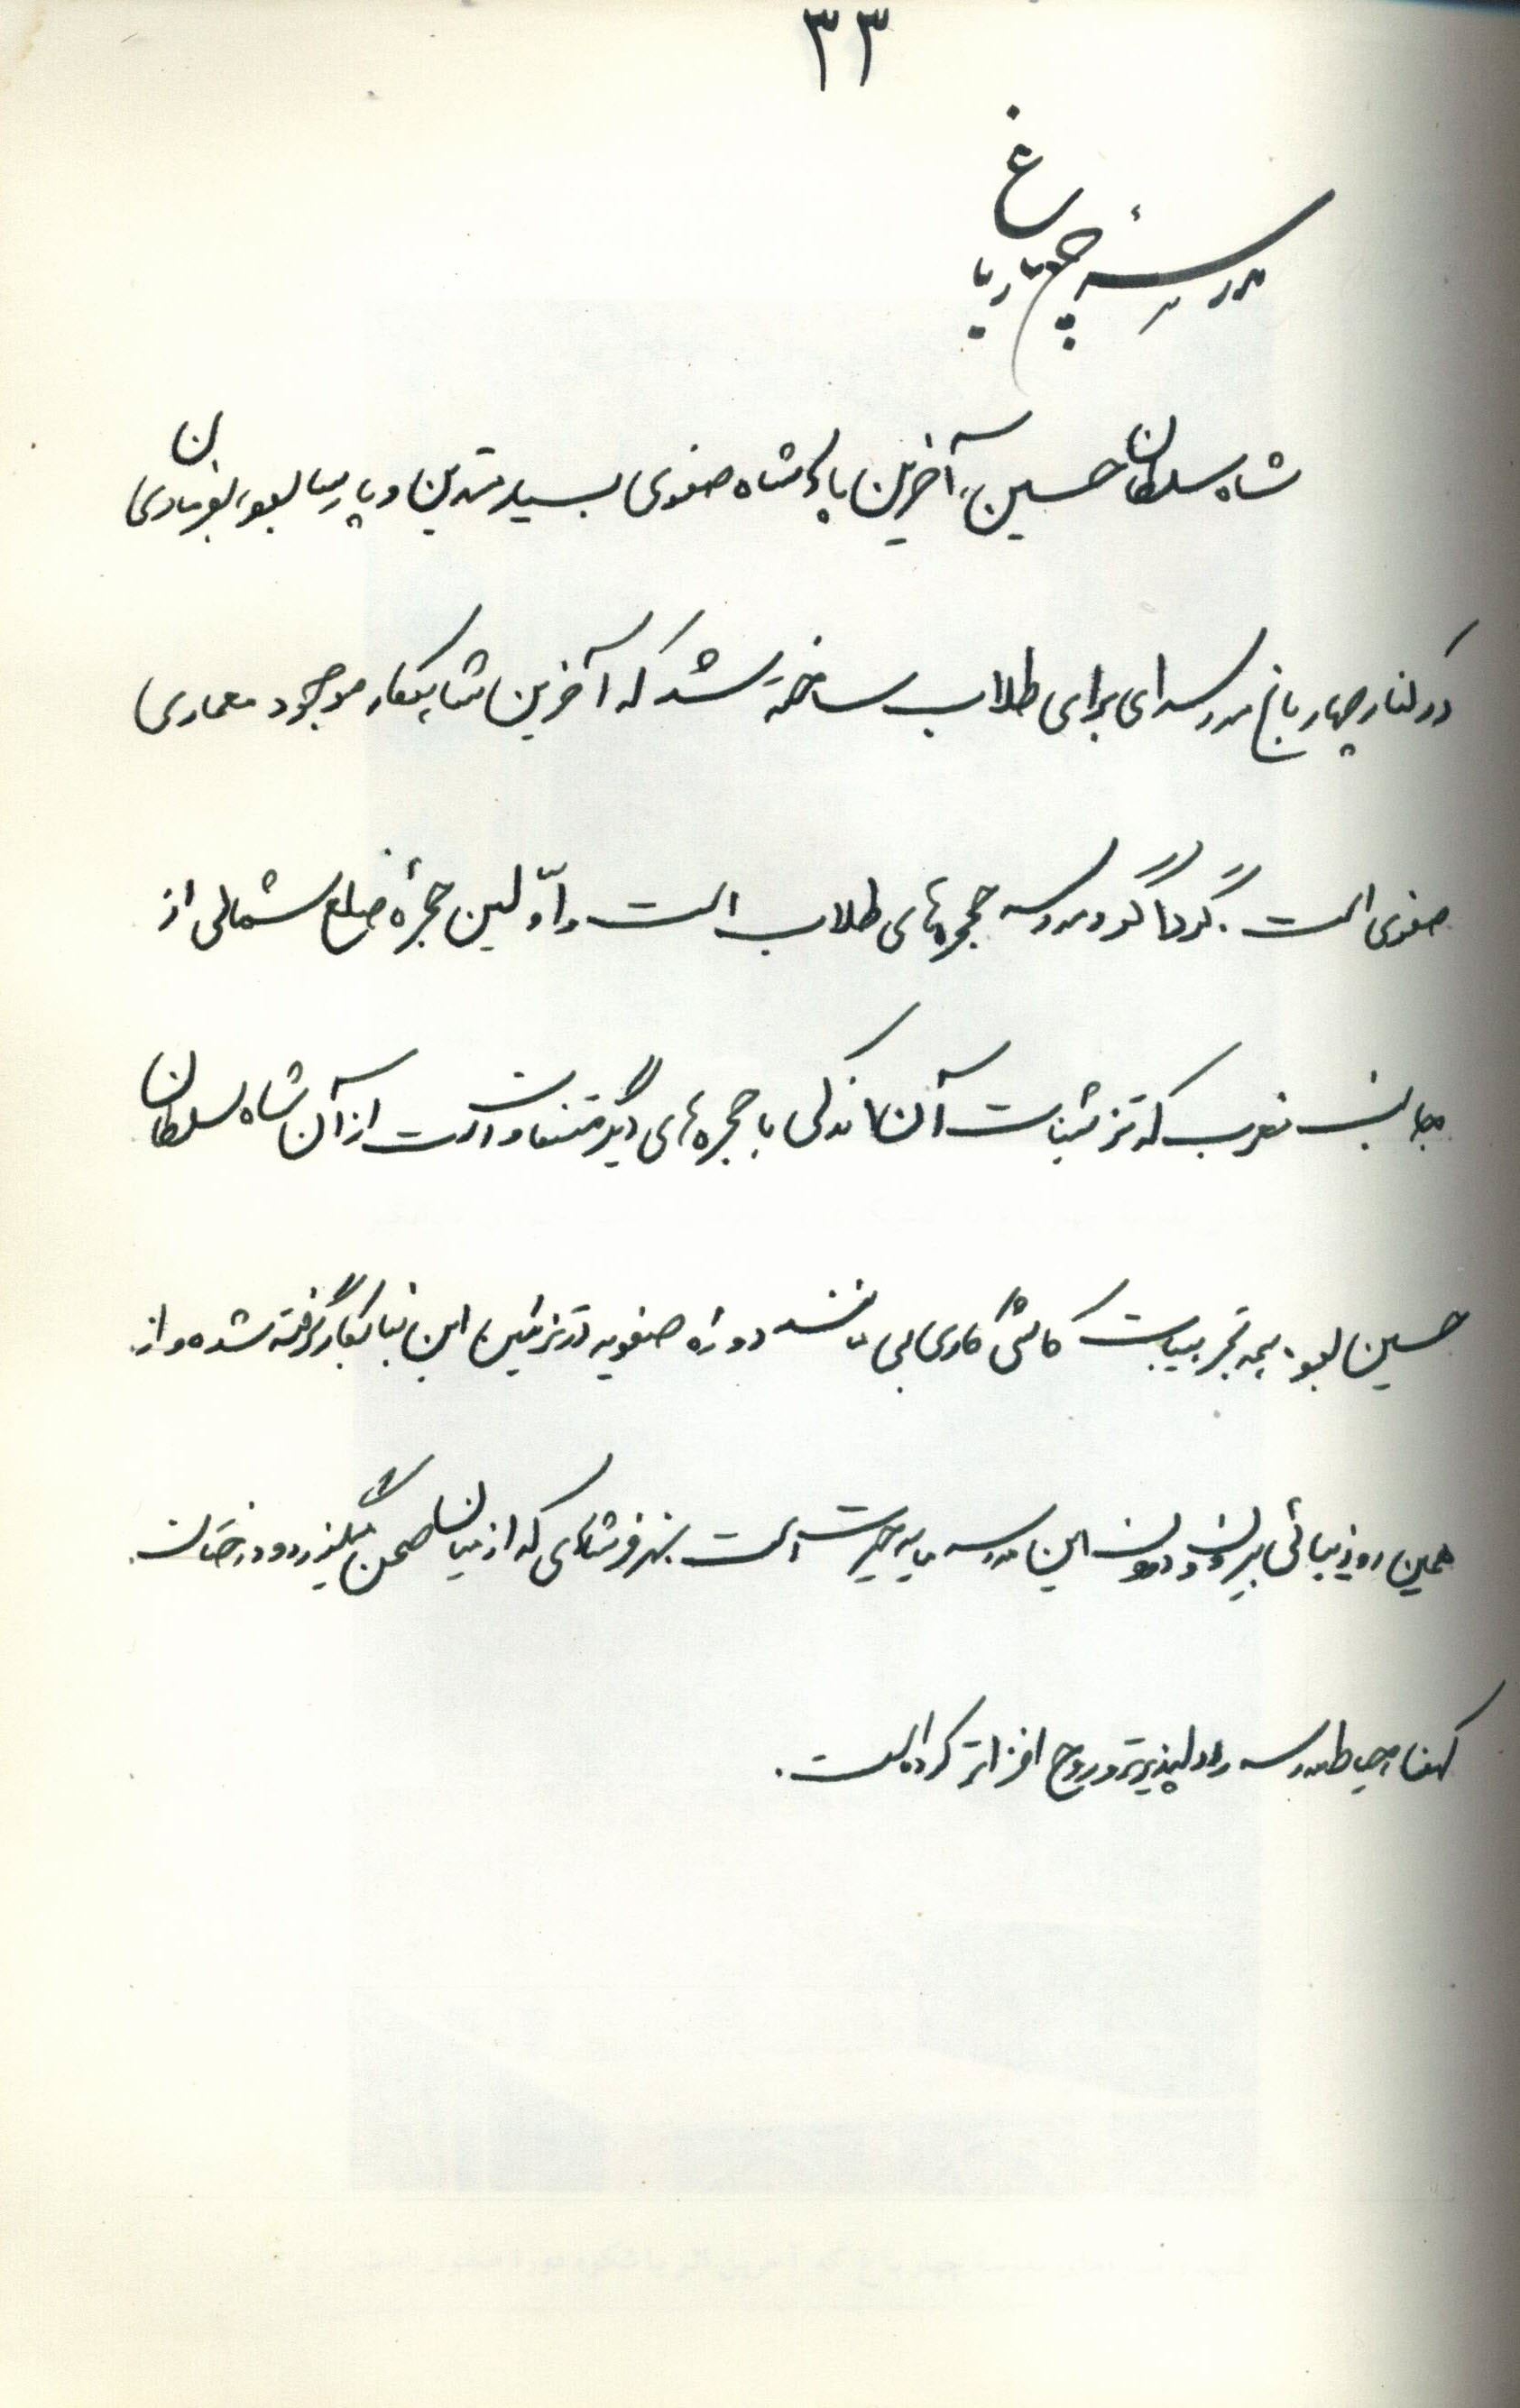 ۳۳
مدرسهٔ چهارباغ
شاه سلطان حسین، آخرین پادشاه صفوی بسیار متدین و پارسا بود، بفرمان وی
در کنار چهارباغ مدرسه‌ای برای طلاب ساخته شد که آخرین شاهکار موجود معماری
صفوی است. گرداگرد مدرسه حجره‌های طلاب است و اوّلین حجرهٔ ضلع شمالی از
جانب مغرب که تزئینات آن اندکی با حجره‌های دیگر متفاوت است از آن شاه سلطان
حسین بود. همه تجربیات کاشی کاری بی مانند دورهٔ صفویه در تزئین این بنا بکار گرفته شده و از
همین رو زیبائی بیرون و درون این مدرسه مایه حیرت است. نهر فرشادی که از میان صحن میگذرد و درختان
کهن، حیاط مدرسه را دلپذیرتر و روح افزاتر کرده است.